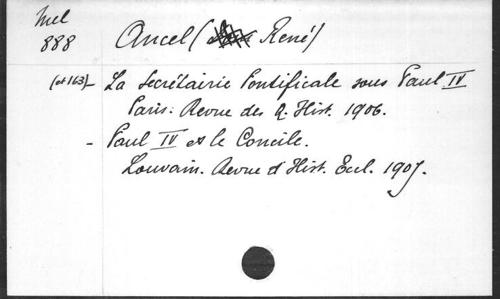 Mel
888
Ancel ( René)
(et 163) - La Secrétairie Pontificale sous Paul IV
Paris. Revue des Q. Hist. 1906.
- Paul IV et le Concile.
Louvain. Revue d'Hist. Eccl. 1907.